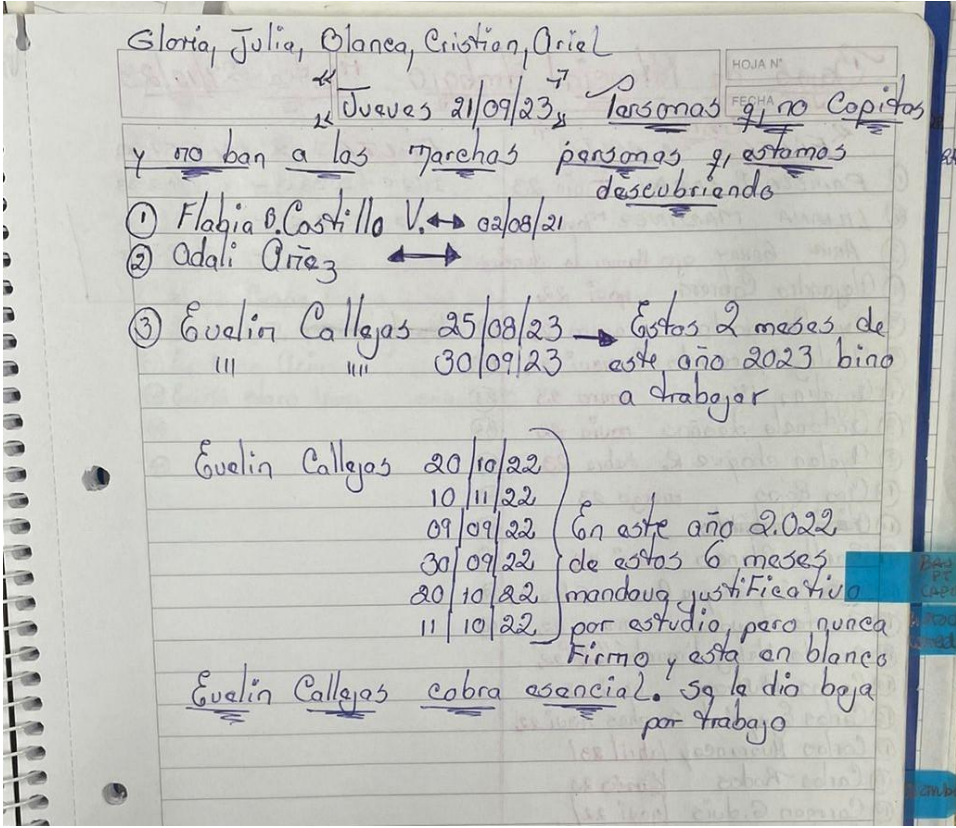 Gloria, Julia, Blanca, Cristian, Ariel
HOJA N°
FECHA
"Jueves 21/09/23" Personas q, no Copitas
y no ban a las marchas personas q, estamos
descubriendo
① Flabia B. Castillo V. ↔ 02/08/21
② Adali Añez ↔
③ Evelin Callejas 25/08/23 → Estos 2 meses de
"" "" 30/09/23 este año 2023 bino
a trabajar
Evelin Callejas 20/10/22
10/11/22
09/09/22 En este año 2.022
30/09/22 de estos 6 meses
20/10/22 mandava justificativo
11/10/22 por estudio, pero nunca
Firmo y esta en blanco
Evelin Callejas cobra esencial. Se le dio baja
por trabajo